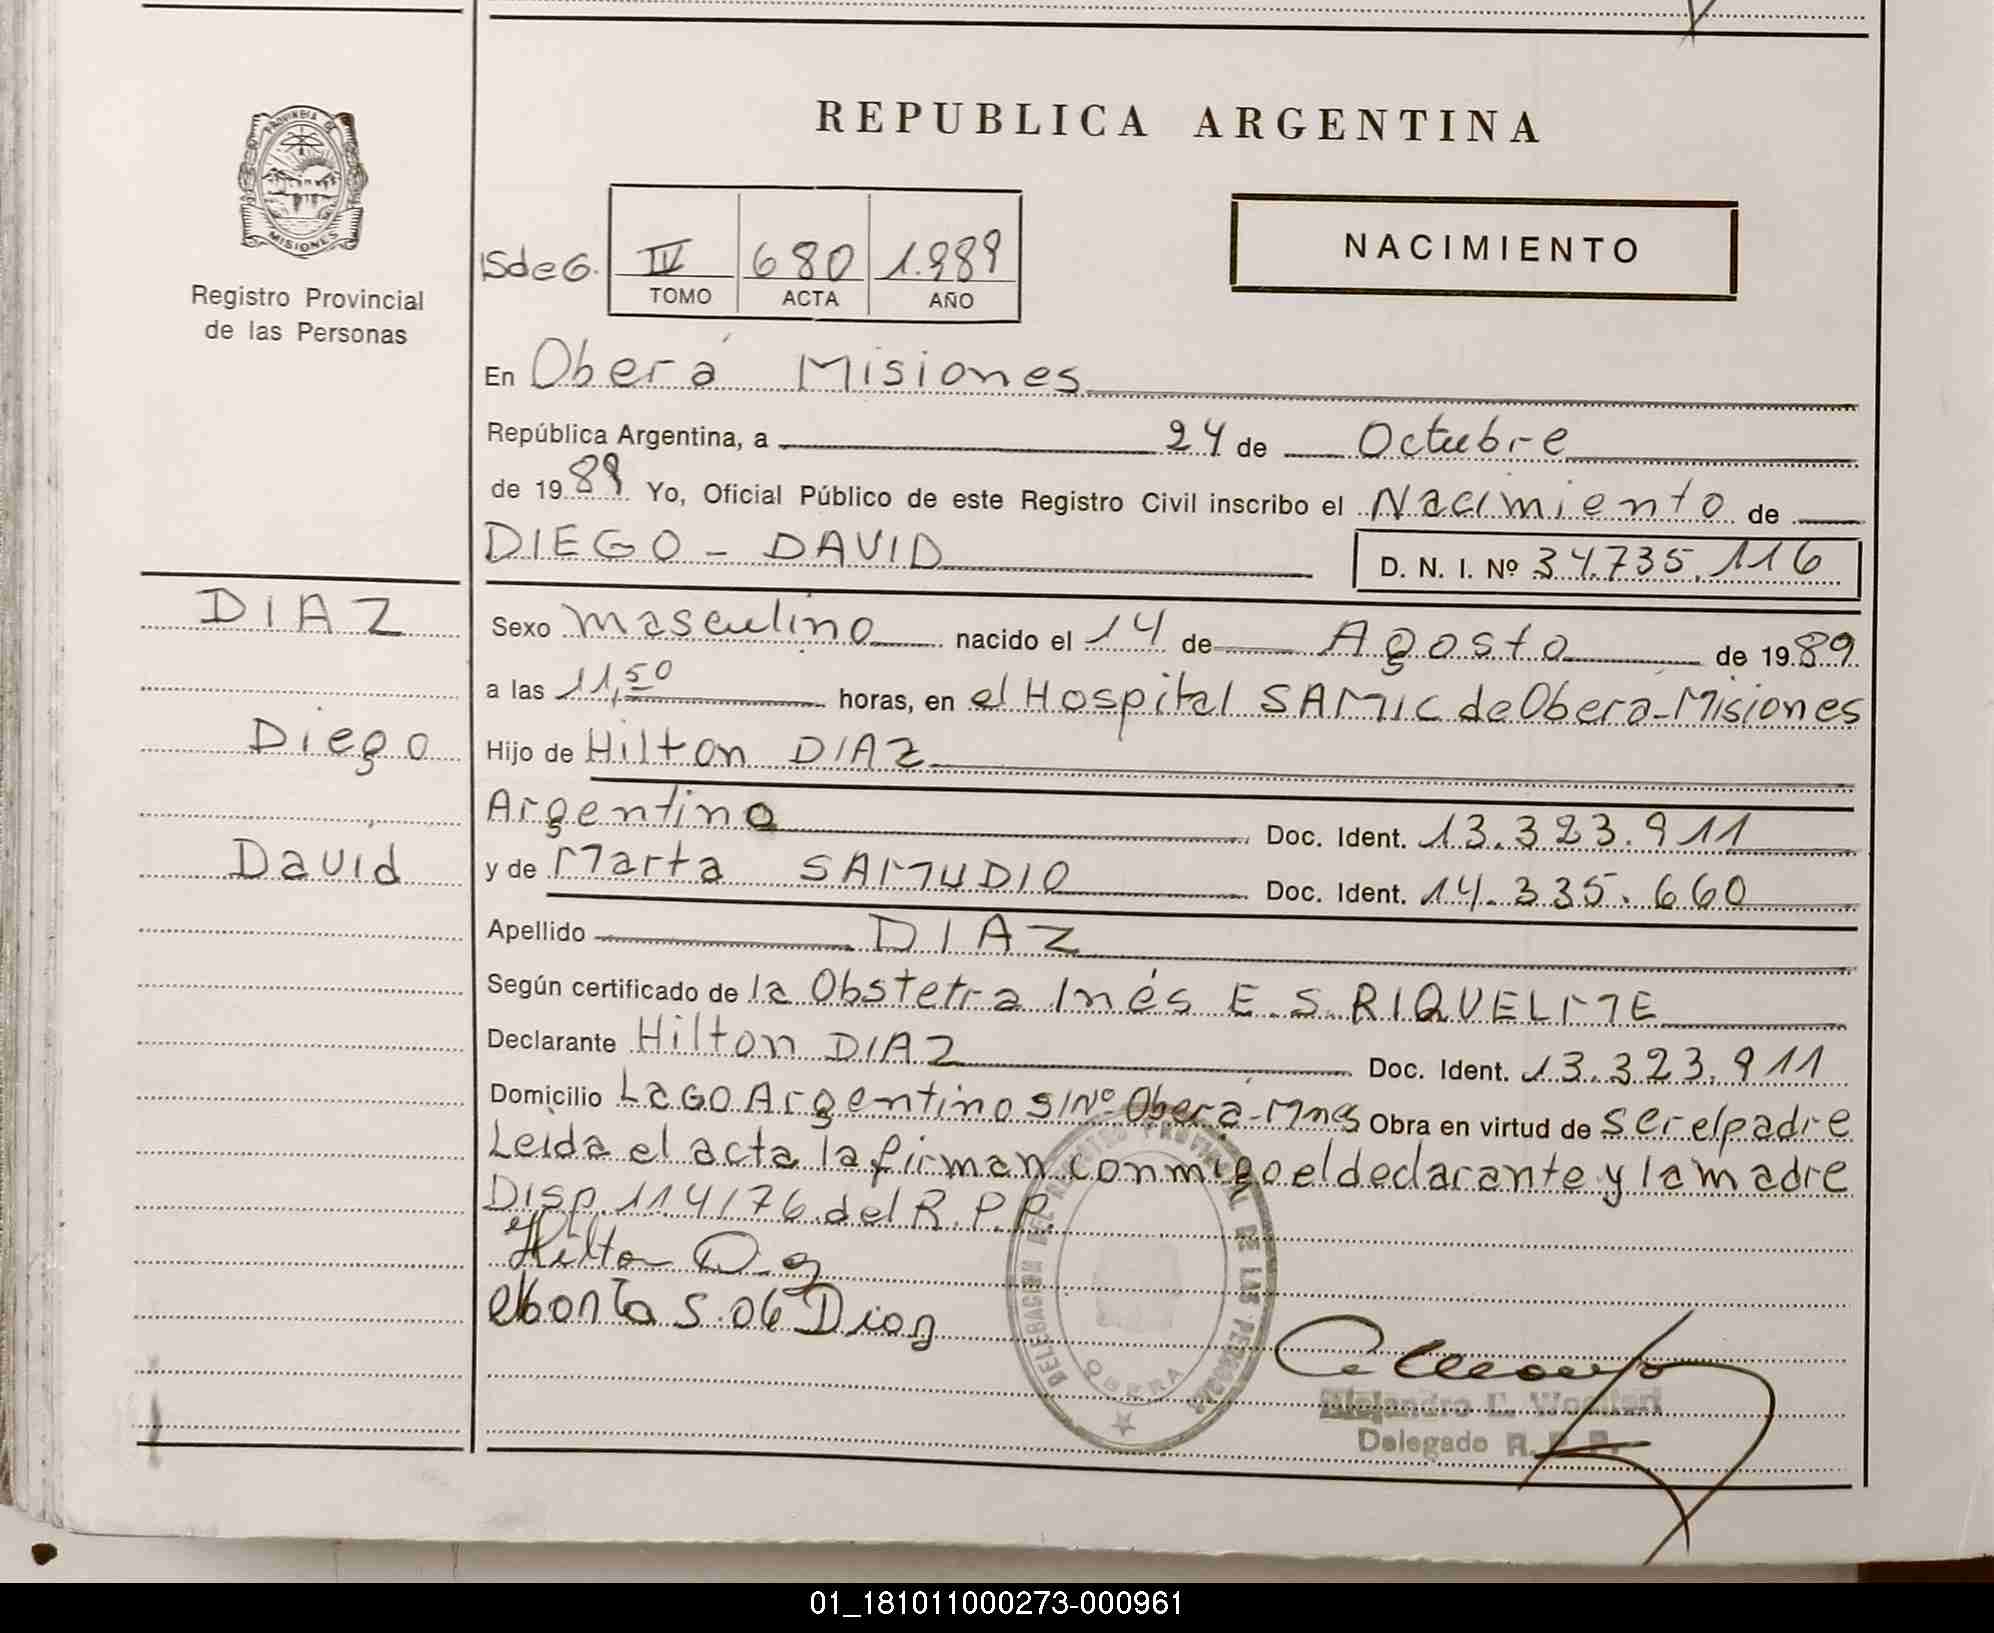 REPUBLICA ARGENTINA
PROVINCIA DE MISIONES
Registro Provincial
de las Personas
ISdeG. IV 680 1.989
TOMO ACTA AÑO
NACIMIENTO
En Oberá Misiones
República Argentina, a 24 de Octubre
de 19 89 Yo, Oficial Público de este Registro Civil inscribo el Nacimiento de
DIEGO - DAVID D. N. I. Nº 34.735.116
DIAZ
Diego
David
Sexo masculino nacido el 14 de Agosto de 19 89
a las 11,50 horas, en el Hospital SAMIC de Oberá-Misiones
Hijo de Hilton DIAZ
Argentino Doc. Ident. 13.323.911
y de Marta SAMUDIO Doc. Ident. 14.335.660
Apellido DIAZ
Según certificado de la Obstetra Inés E. S. RIQUELME
Declarante Hilton DIAZ Doc. Ident. 13.323.911
Domicilio LAGO Argentino S/Nº Oberá-Mnes Obra en virtud de ser el padre
Leida el acta la firman conmigo el declarante y la madre
Disp. 114/76 del R.P.P.
Hilton
DELEGACION DEL REGISTRO PROVINCIAL DE LAS PERSONAS
OBERA
Alejandro E.
Delegado R. P. P.
01_181011000273-000961